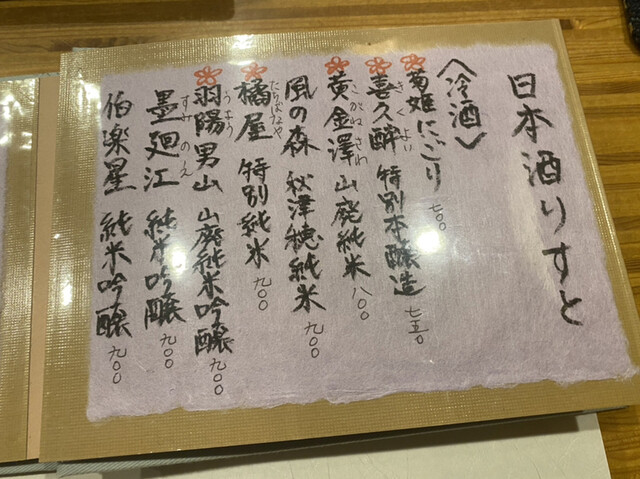 日本酒りすと
〈冷酒〉
菊姫にごり 七〇〇
喜久酔 特別本醸造 七五〇
きくよい
黄金澤 山廃純米 八〇〇
こがねさわ
風の森 秋津穂純米 九〇〇
橘屋 特別純米 九〇〇
たちばなや
羽陽男山 山廃純米吟醸 九〇〇
うよう
墨廼江 純米吟醸 九〇〇
すみのえ
伯楽星 純米吟醸 九〇〇